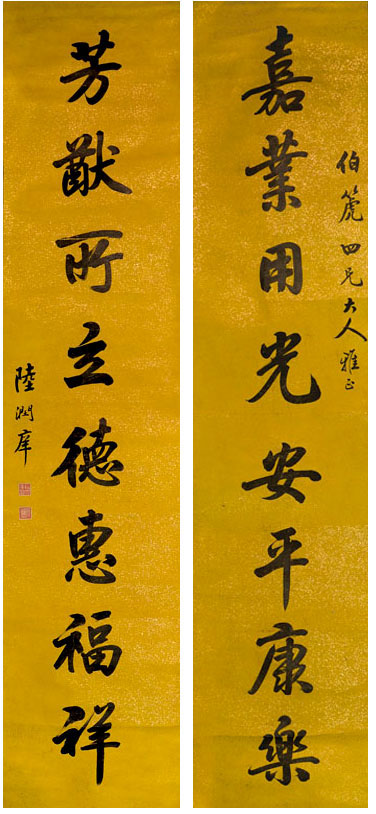 伯箎四兄大人雅正
嘉業用光安平康樂
芳猷所立德惠福祥
陸潤庠